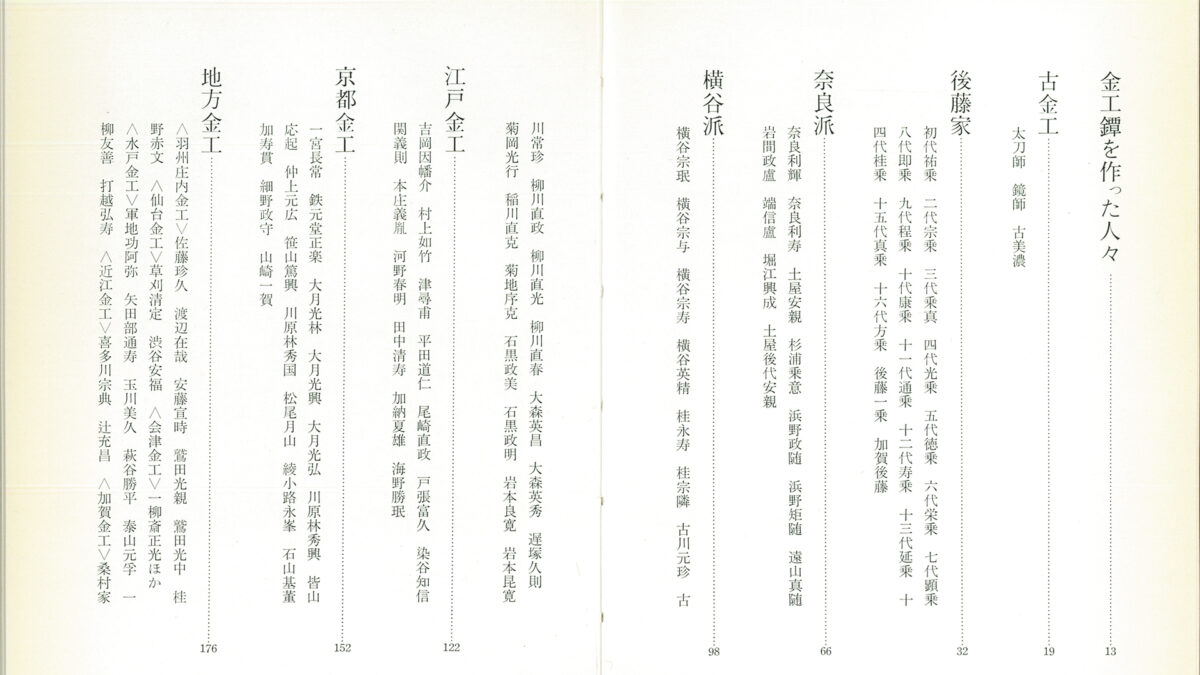 金工鐔を作った人々 13
古金工 19
太刀師 鏡師 古美濃
後藤家 32
初代祐乗 二代宗乗 三代乗真 四代光乗 五代徳乗 六代栄乗 七代顕乗
八代即乗 九代程乗 十代康乗 十一代通乗 十二代寿乗 十三代延乗 十
四代桂乗 十五代真乗 十六代方乗 後藤一乗 加賀後藤
奈良派 66
奈良利輝 奈良利寿 土屋安親 杉浦乗意 浜野政随 浜野矩随 遠山真随
岩間政盧 端信盧 堀江興成 土屋後代安親
横谷派 98
横谷宗珉 横谷宗与 横谷宗寿 横谷英精 桂永寿 桂宗隣 古川元珍 古
川常珍 柳川直政 柳川直光 柳川直春 大森英昌 大森英秀 遅塚久則
菊岡光行 稲川直克 菊地序克 石黒政美 石黒政明 岩本良寛 岩本昆寛
江戸金工 122
吉岡因幡介 村上如竹 津尋甫 平田道仁 尾崎直政 戸張富久 染谷知信
関義則 本庄義胤 河野春明 田中清寿 加納夏雄 海野勝珉
京都金工 152
一宮長常 鉄元堂正楽 大月光林 大月光興 大月光弘 川原林秀興 皆山
応起 仲上元広 笹山篤興 川原林秀国 松尾月山 綾小路永峯 石山基董
加寿貫 細野政守 山崎一賀
地方金工 176
〈羽州庄内金工〉佐藤珍久 渡辺在哉 安藤宣時 鷲田光親 鷲田光中 桂
野赤文 〈仙台金工〉草刈清定 渋谷安福 〈会津金工〉一柳斎正光ほか
〈水戸金工〉軍地功阿弥 矢田部通寿 玉川美久 萩谷勝平 泰山元孚 一
柳友善 打越弘寿 〈近江金工〉喜多川宗典 辻充昌 〈加賀金工〉桑村家